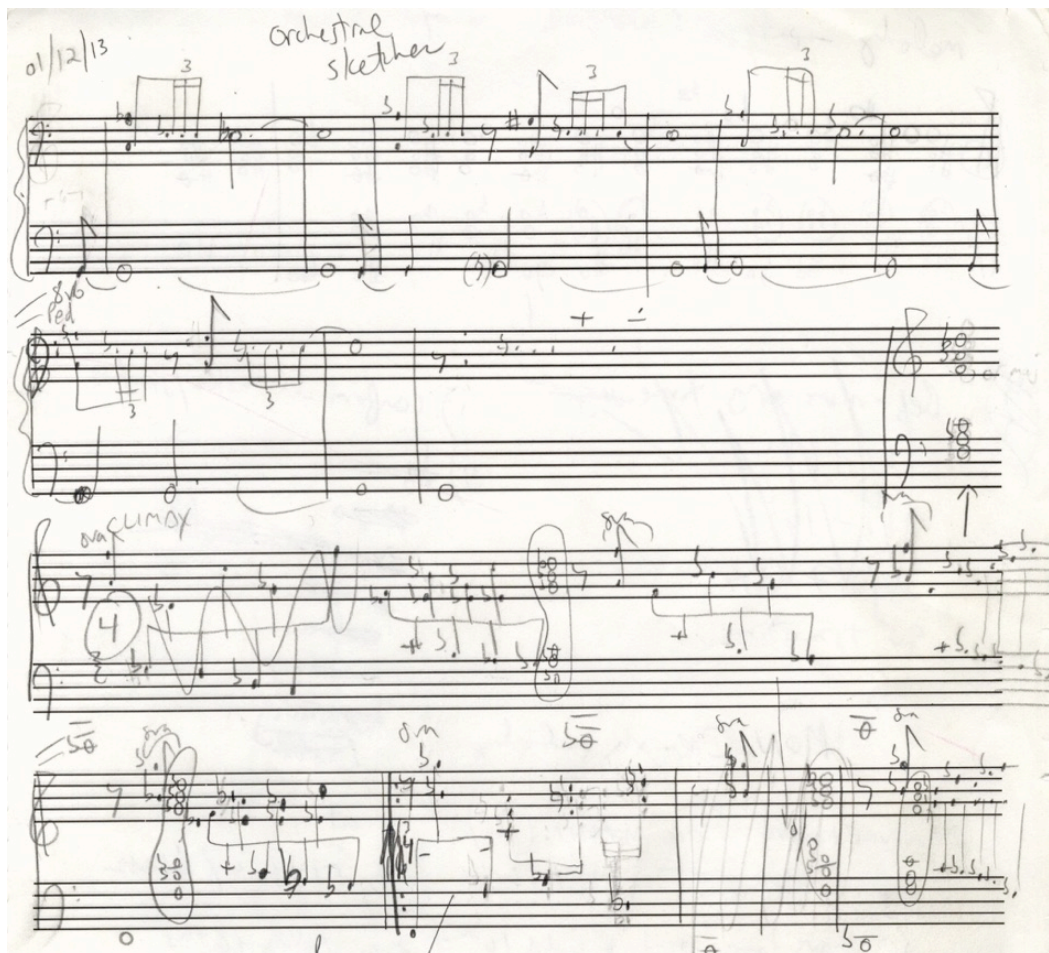 01/12/13
Orchestral
sketches
3
3
3
3
8vb
ped
3
3
8va
CLIMAX
8va
4
8va
8va
8va
8va